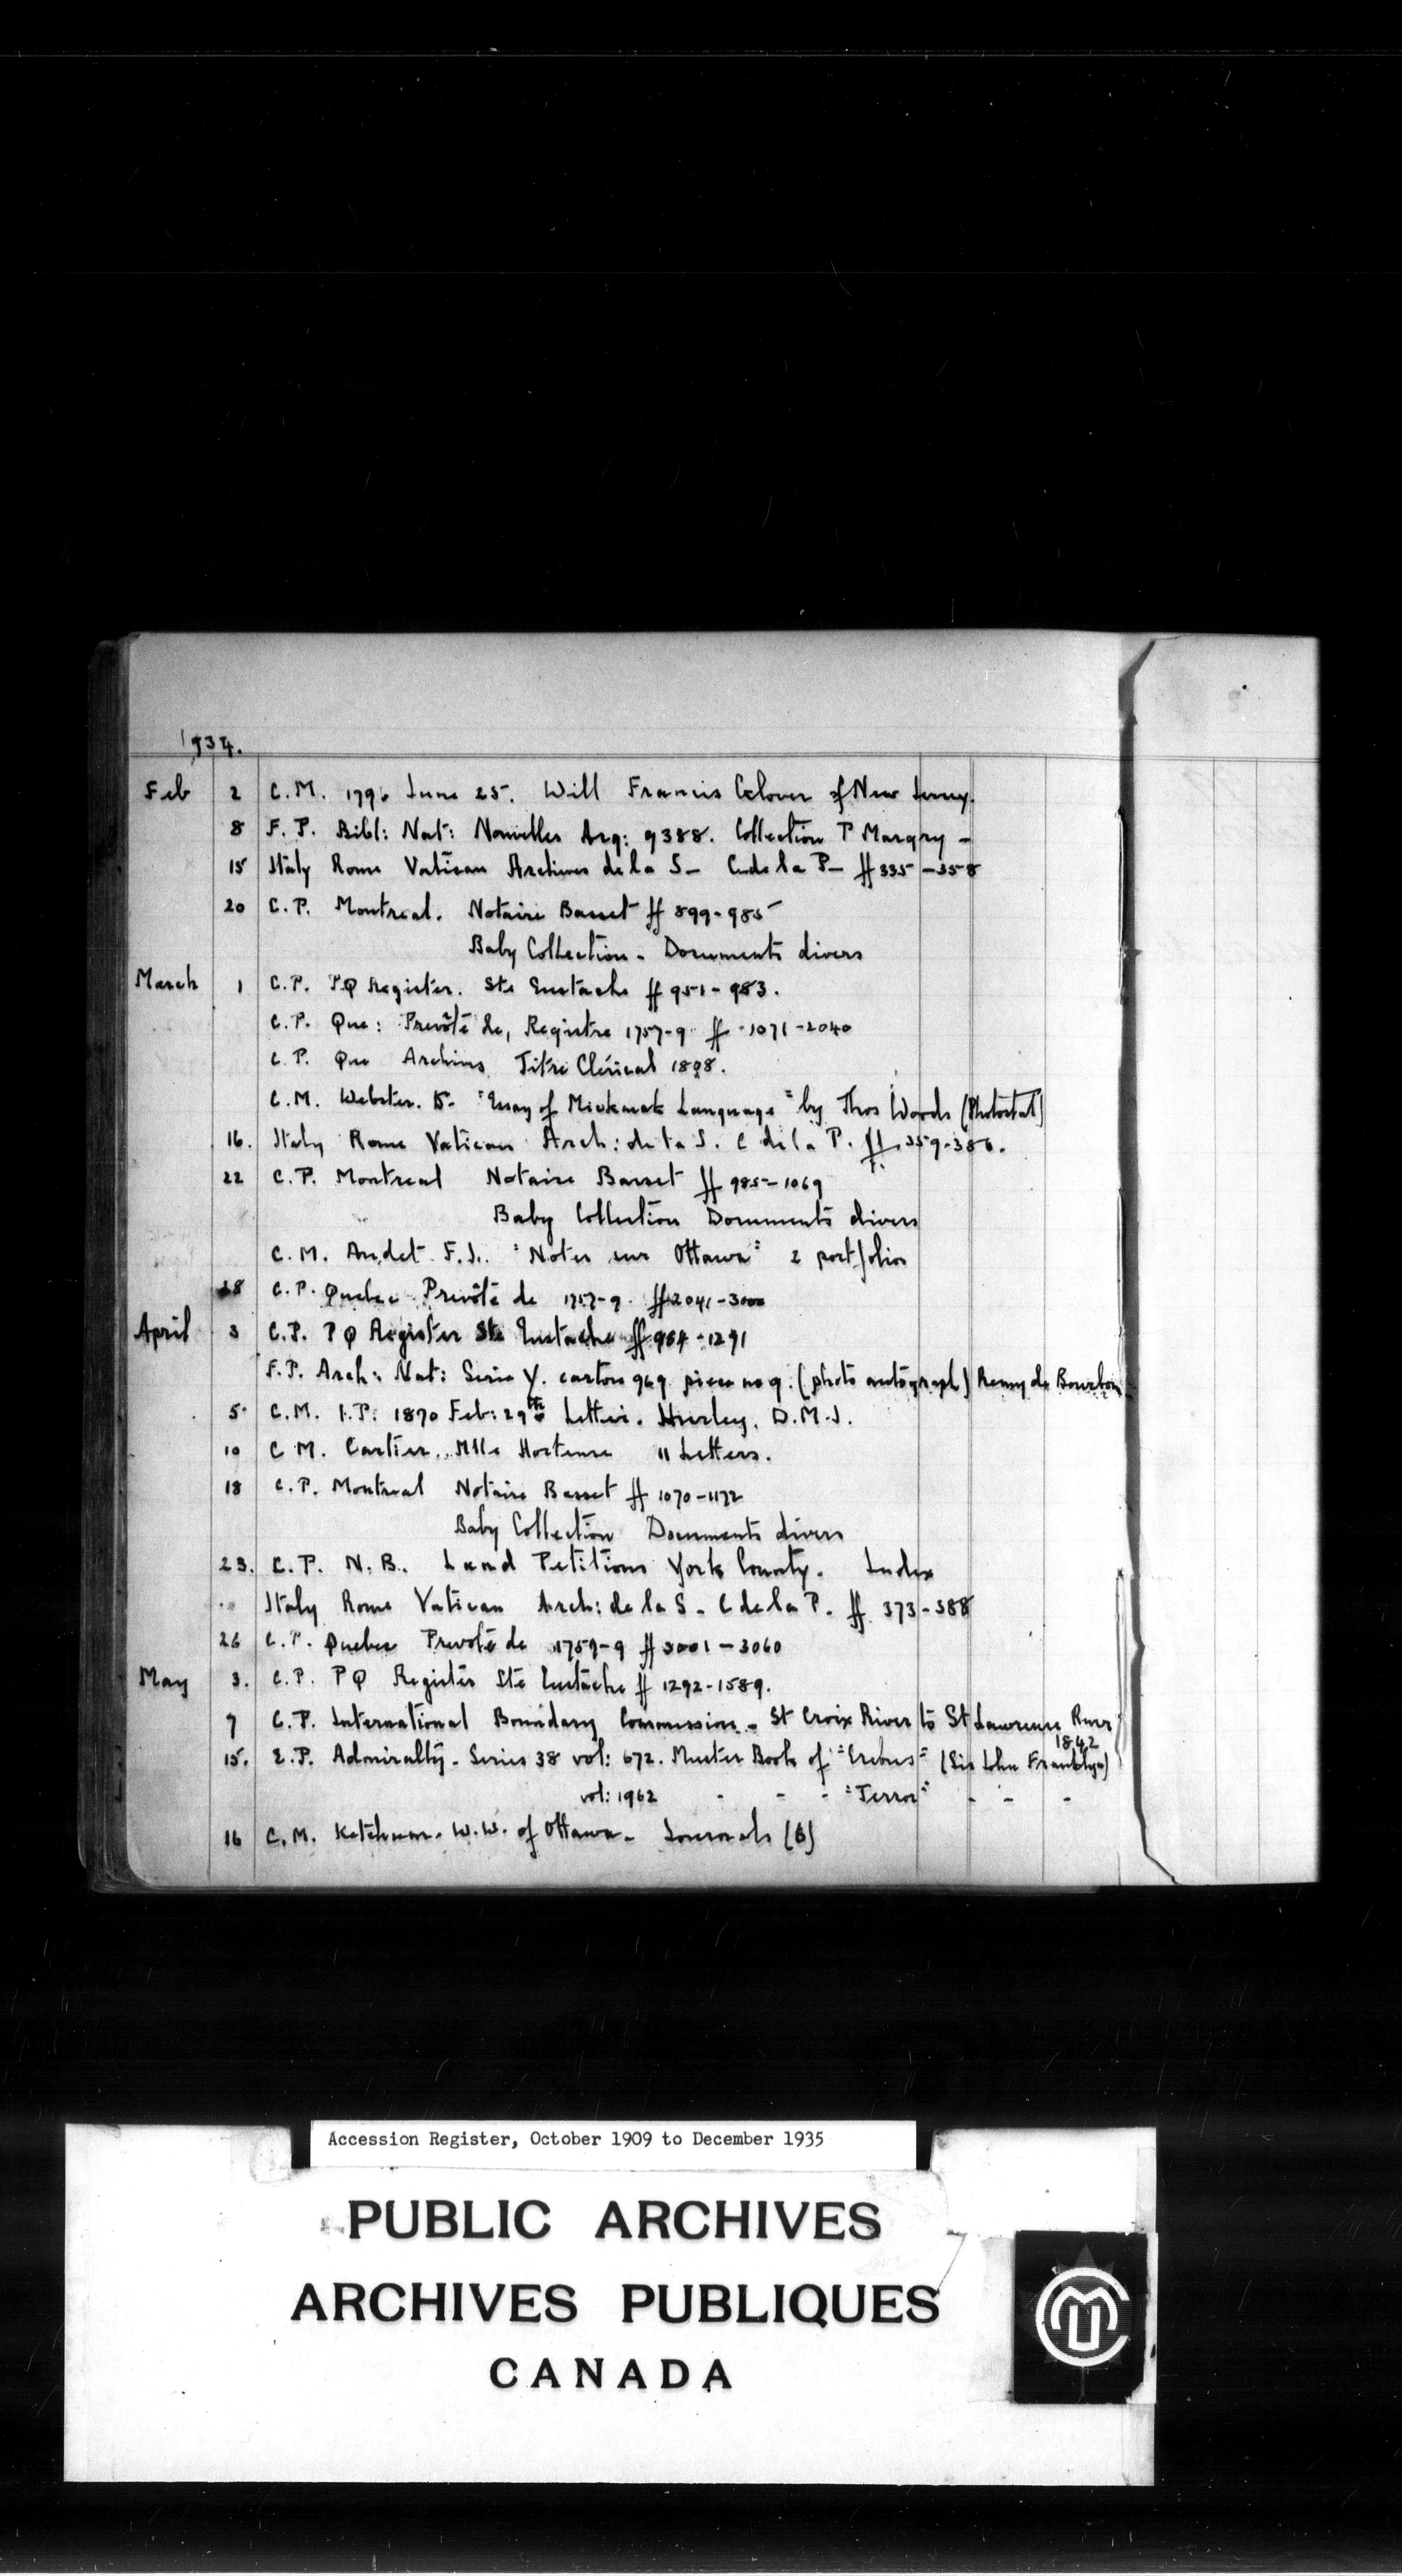 1934.
Feb 2 C.M. 1796 June 25. Will Francis Glover of New Jersey.
8 F.P. Bibl: Nat: Nouvelles Acq: 9388. Collection P Margry -
15 Italy Rome Vatican Archives de la S- C de la P- ff 335-358
20 C.P. Montreal. Notaire Basset ff 899-985
Baby Collection - Documents divers
March 1 C.P. PQ Register. Ste Eustache ff 951-983.
C.P. Que: Prevôté de, Registre 1757-9 ff 1071-2040
C.P. Que Archives Titre Clérical 1808.
C.M. Webster. "Essay of Mickmak Language" by Thos Woods (Photostat)
16. Italy Rome Vatican Arch: de la S. C de la P. ff. 359-386.
22 C.P. Montreal Notaire Basset ff 985-1069
Baby Collection Documents divers
C.M. Audet F.J. "Notes sur Ottawa" 2 portfolios
28 C.P. Quebec Prevôté de 1757-9. ff 2041-3000
April 3 C.P. PQ Register Ste Eustache ff 984-1291
F.P. Arch: Nat: Serie Y. carton 969 piece no 9. (photo autograph) Remy de Bourbon
5 C.M. I.P: 1870 Feb: 29th Letter. Hurley. D.M.J.
10 C M. Cartier. Mlle Hortense 11 Letters.
18 C.P. Montreal Notaire Basset ff 1070-1172
Baby Collection Documents divers
23. C.P. N.B. Land Petitions York County. Index
.. Italy Rome Vatican Arch: de la S - C de la P. ff 373-388
26 C.P. Quebec Prevoté de 1757-9 ff 3001-3060
May 3. C.P. PQ Register Ste Eustache ff 1292-1589.
7 C.P. International Boundary Commission - St Croix River to St Lawrence River
1842
15. E.P. Admiralty - Series 38 vol: 672. Muster Book of "Erebus" (Sir John Franklyn)
vol: 1962 - - - "Terror" - - -
16 C.M. Ketchum. W.W. of Ottawa - Journals (6)
Accession Register, October 1909 to December 1935
PUBLIC ARCHIVES
ARCHIVES PUBLIQUES
CANADA